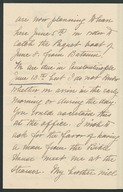 are now planning to leave
here June 5th in order to
catch the Pacquet boat of
June 8 from Batavia.
We are due in
June 10th but I do not know
whether we arrive in the early
morning or during the day.
You could ascertain this
at the office. I wish to
ask for the favor of having
a man from the Bible
House meet me at the
steamer. My brother will